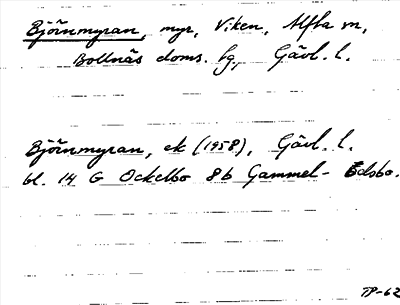 Björnmyran, myr, Viken, Alfta sn,
Bollnäs doms. fg, Gävl. l.
Björnmyran, ek (1958), Gävl. l.
bl. 14 G Ockelbo 8b Gammel-Edsbo.
TP-62